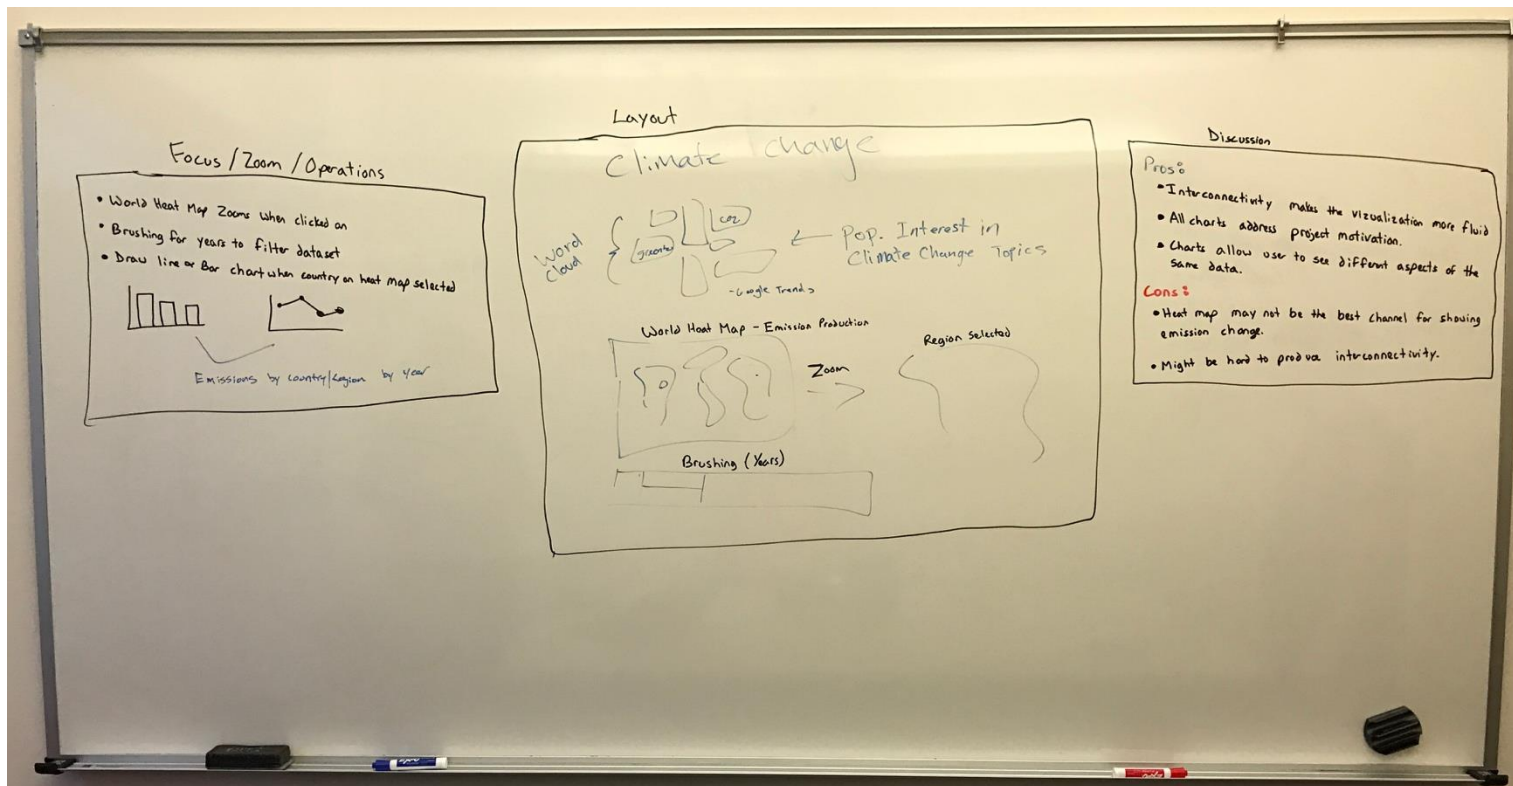 Focus / Zoom / Operations
• World Heat Map Zooms when clicked on
• Brushing for years to filter dataset
• Draw line or Bar chart when country on heat map selected
Emissions by country/Region by year
Layout
Climate change
Word
Cloud
CO2
greenhs
Pop. Interest in
Climate Change Topics
- Google Trends
World Heat Map - Emission Production
Zoom
Region Selected
Brushing (Years)
Discussion
Pros:
• Interconnectivity makes the vizualization more fluid
• All charts address project motivation.
• Charts allow user to see different aspects of the
same data.
Cons:
• Heat map may not be the best channel for showing
emission change.
• Might be hard to produce interconnectivity.